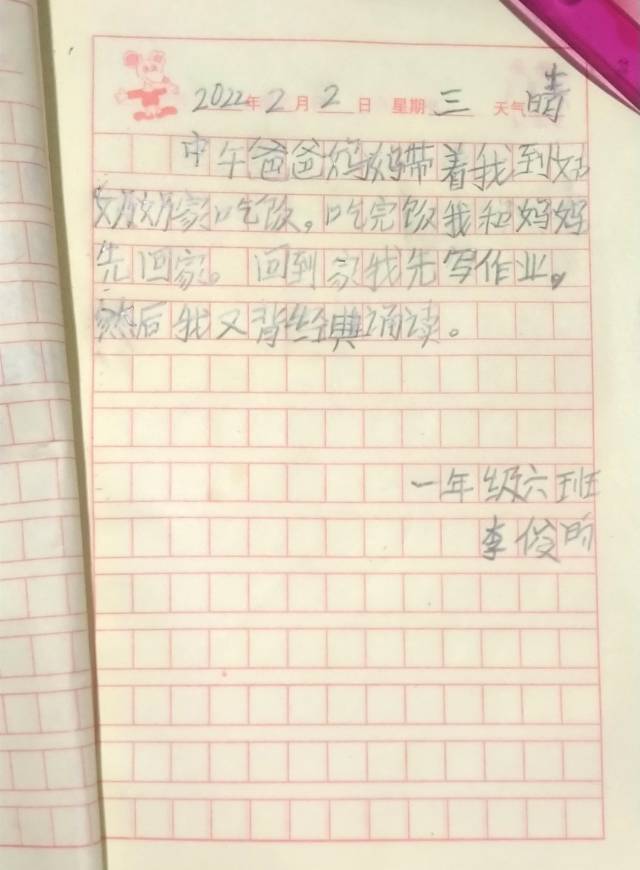 2022年2月2日 星期三 天气晴
中午爸爸妈妈带着我到奶
奶家吃饭。吃完饭我和妈妈
先回家。回到家我先写作业。
然后我又背经典诵读。
一年级六班
李俊